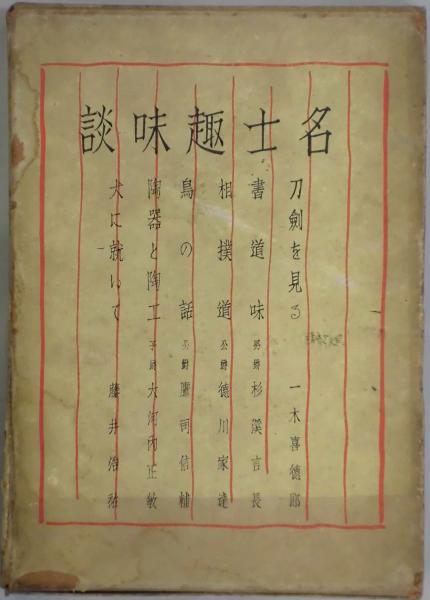 名士趣味談
刀劍を見る 一木喜德郎
書道味 男爵 杉溪言長
相撲道 公爵 德川家達
鳥の話 公爵 鷹司信輔
陶器と陶工 子爵 大河內正敏
犬に就いて 藤井浩祐